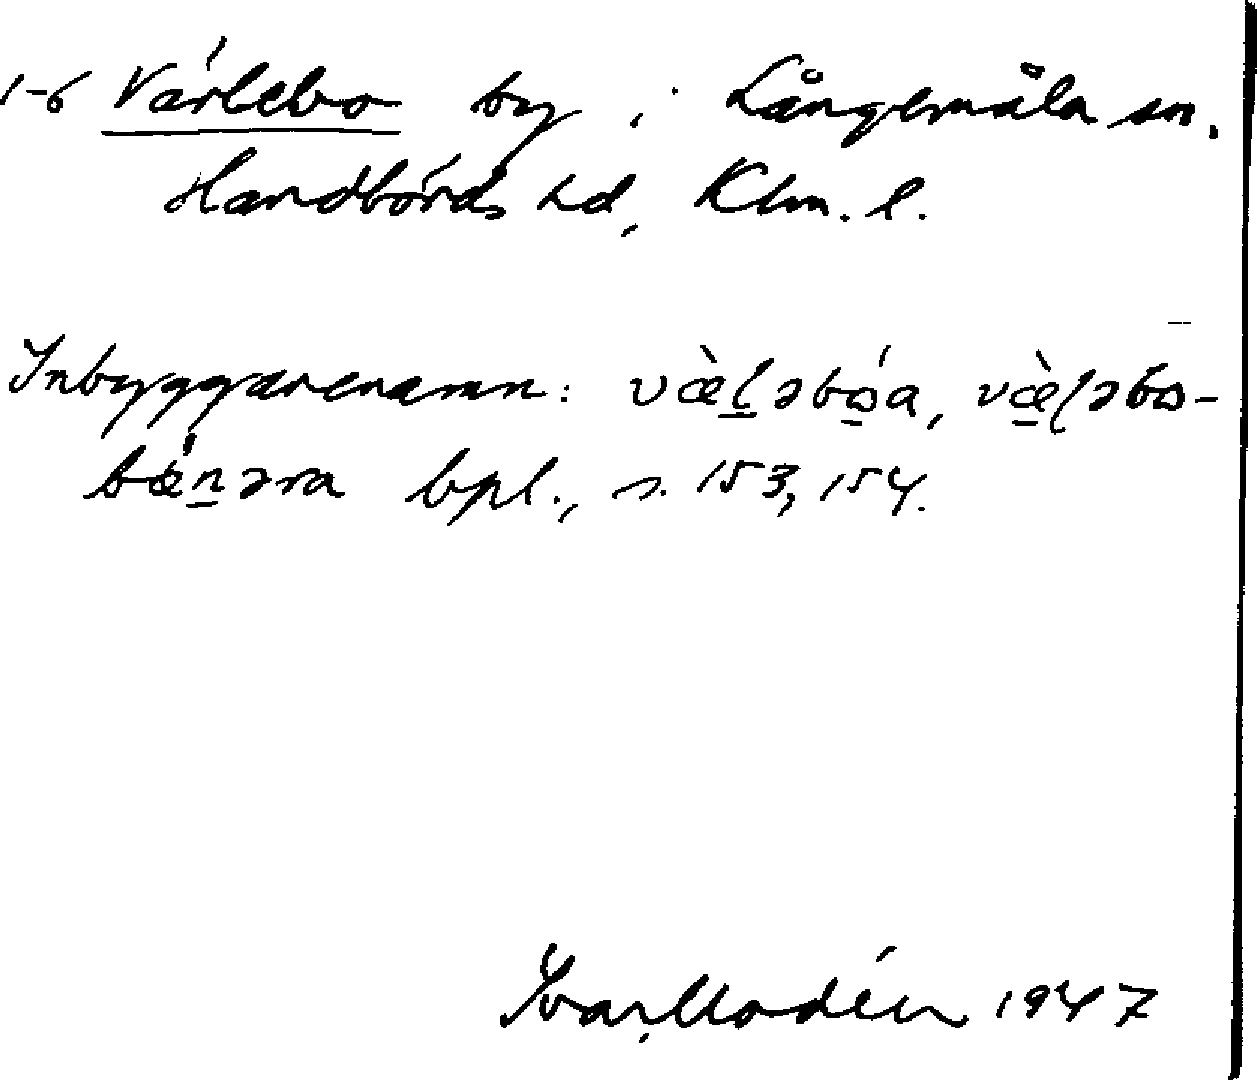 1-6 Värlebo by i Långemåla sn.
Handbörds hd, Klm. l.
Inbyggarenamn: væ̀l̠əbó̠a, væ̠̀ləbo-
bǽn̠əra bpl., s. 153, 154.
Ivar Modéer 1947